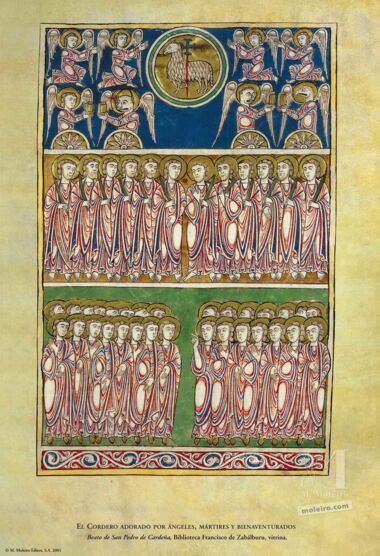 M
M. Moleiro
moleiro.com
EL CORDERO ADORADO POR ÁNGELES, MÁRTIRES Y BIENAVENTURADOS
Beato de San Pedro de Cardeña, Biblioteca Francisco de Zabálburu, vitrina.
© M. Moleiro Editor, S.A. 2001